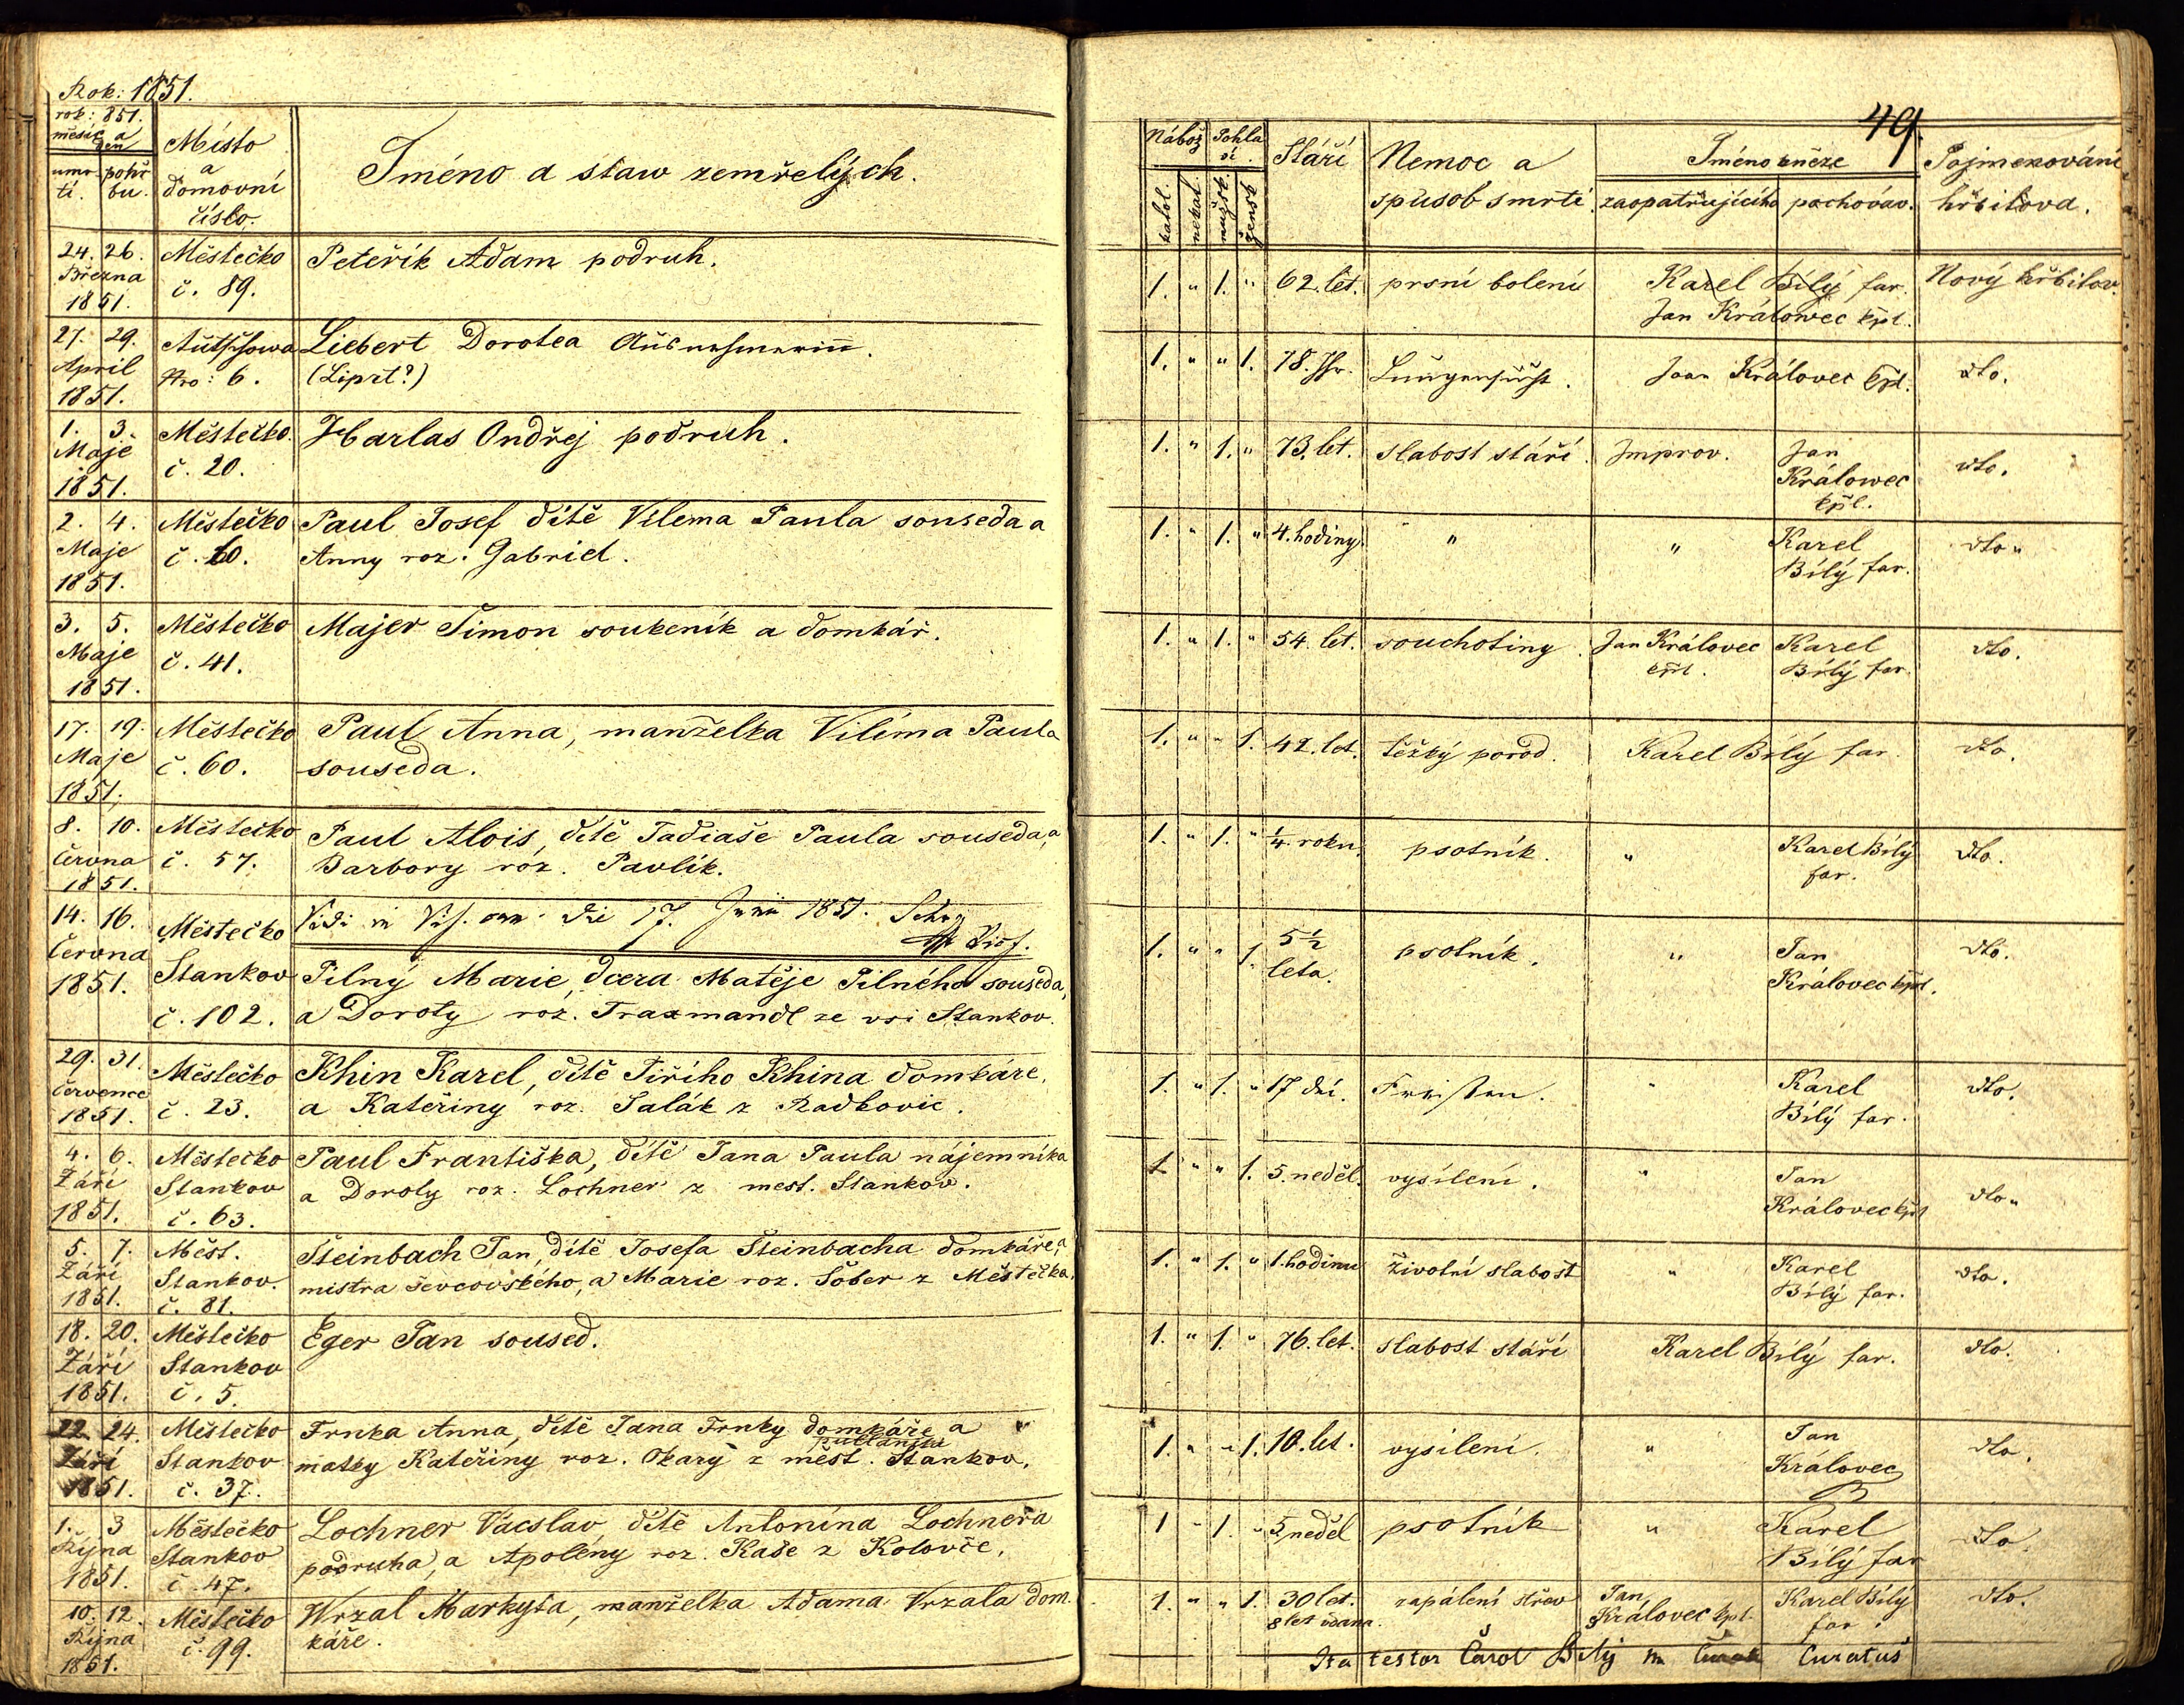 Rok: 1851.
rok: 851.
měsíc a
den
umr
tí.
pohř
bu.
Místo
a
domovní
číslo.
Jméno a staw zemřelých.
24. 26.
Března
1851.
Městečko
č. 89.
Peteřík Adam podruh.
27. 29.
April
1851.
Nro: 6.
Liebert Dorotea Ausnehmerinn.
(Liprt?)
1. 3.
Maje
1851.
Městečko.
č. 20.
Harlas Ondřej podruh.
2. 4.
Maje
1851.
Městečko
č. 60.
Paul Josef dítě Vilema Paula souseda a
Anny roz. Gabriel.
3. 5.
Maje
1851.
Městečko
č. 41.
Majer Šimon soukeník a domkář.
17. 19.
Maje
1851.
Městečko
č. 60.
Paul Anna, manželka Vilíma Paula
souseda.
8. 10.
června
1851.
Městečko
č. 57.
Paul Alois, dítě Tadiaše Paula souseda, a
Barbory roz. Pavlík.
14. 16.
června
1851.
Městečko
Stankov
č. 102.
Vidi in Vis. can. die 17. Junii 1851.
Pilný Marie, dcera Matěje Pilného souseda,
a Doroty roz. Traxmandl ze vsi Stankov.
29. 31.
července
1851.
Městečko
č. 23.
Khin Karel, dítě Jiřího Khina domkáře,
a Kateřiny roz. Salák z Radkovic.
4. 6.
Září
1851.
Městečko
Stankov
č. 63.
Paul Františka, dítě Jana Paula nájemníka
a Doroty roz. Lochner z mest. Stankov.
5. 7.
Září
1851.
Měst.
Stankov.
č. 81.
Šteinbach Jan, dítě Josefa Šteinbacha domkáře, a
mistra ševcovského, a Marie roz. Šöber z Městečka.
18. 20.
Září
1851.
Městečko
Stankov
č. 5.
Eger Jan soused.
22. 24.
Září
1851.
Městečko
Stankov
č. 37.
Frnka Anna, dítě Jana Frnky domkáře a
matky Kateřiny roz. Okarý z mest. Stankov.
1. 3
Října
1851.
Městečko
Stankov
č. 47.
Lochner Václav, dítě Antonína Lochnera
podruha, a Apoleny roz. Kaše z Kolovče.
10. 12.
Října
1851.
Městečko
č. 99.
Wrzal Markyta, manželka Adama Vrzala dom
káře.
49.
Nábož
Pohla
ví.
Stáří
Nemoc a
spůsob smrti.
Jméno kněze
Pojmenování
hřbitova.
katol.
nekat.
mužsk.
žensk.
zaopatřujícího
pochováv.
1. " 1. " 62. let. prsní bolení Karel Bílý far. Nový hřbitov.
Jan Králowec kpl.
1. " " 1. 78. Jhr. Lungensucht. Joan Královec kpl. dto.
1. " 1. " 73. let. slabost stáří. Improv. Jan
Králowec
kpl.
dto.
1. " 1. " 4. hodiny. " " Karel
Bílý far.
dto "
1. " 1. " 54. let. souchotiny. Jan Královec
kpl.
Karel
Bílý far.
dto.
1. " " 1. 42. let. těžký porod. Karel Bílý far. dto.
1. " 1. " 1/4. roku. psotník. " Karel Bílý
far.
dto.
1. " " 1. 5 1/2
leta.
psotník. " Jan
Královec kpl.
dto.
1. " 1. " 17 dní. Fraisen. " Karel
Bílý far.
dto.
1. " " 1. 5. neděl. vysílení. " Jan
Královec kpl
dto "
1. " 1. " 1. hodinu životní slabost " Karel
Bílý far.
dto.
1. " 1. " 76. let. slabost stáří Karel Bílý far. dto.
1. " " 1. 10. let. vysílení. " Jan
Královec
dto.
1 " 1. " 5 neděl psotník " Karel
Bílý far
dto.
1. " " 1. 30 let.
8 let vdana.
zapálení střev Jan
Královec kpl.
Karel Bílý
far.
dto.
Ita testor Carol Bily Curatus